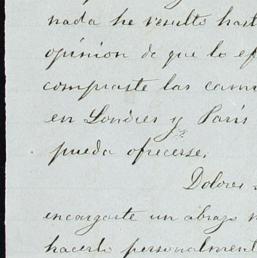 nada he resulto hast
opinion de que lo ef
compraste las cami
en Londres y Paris
pueda ofrecerse.
Dolores
encargarte un abrazo
hacerlo personalment